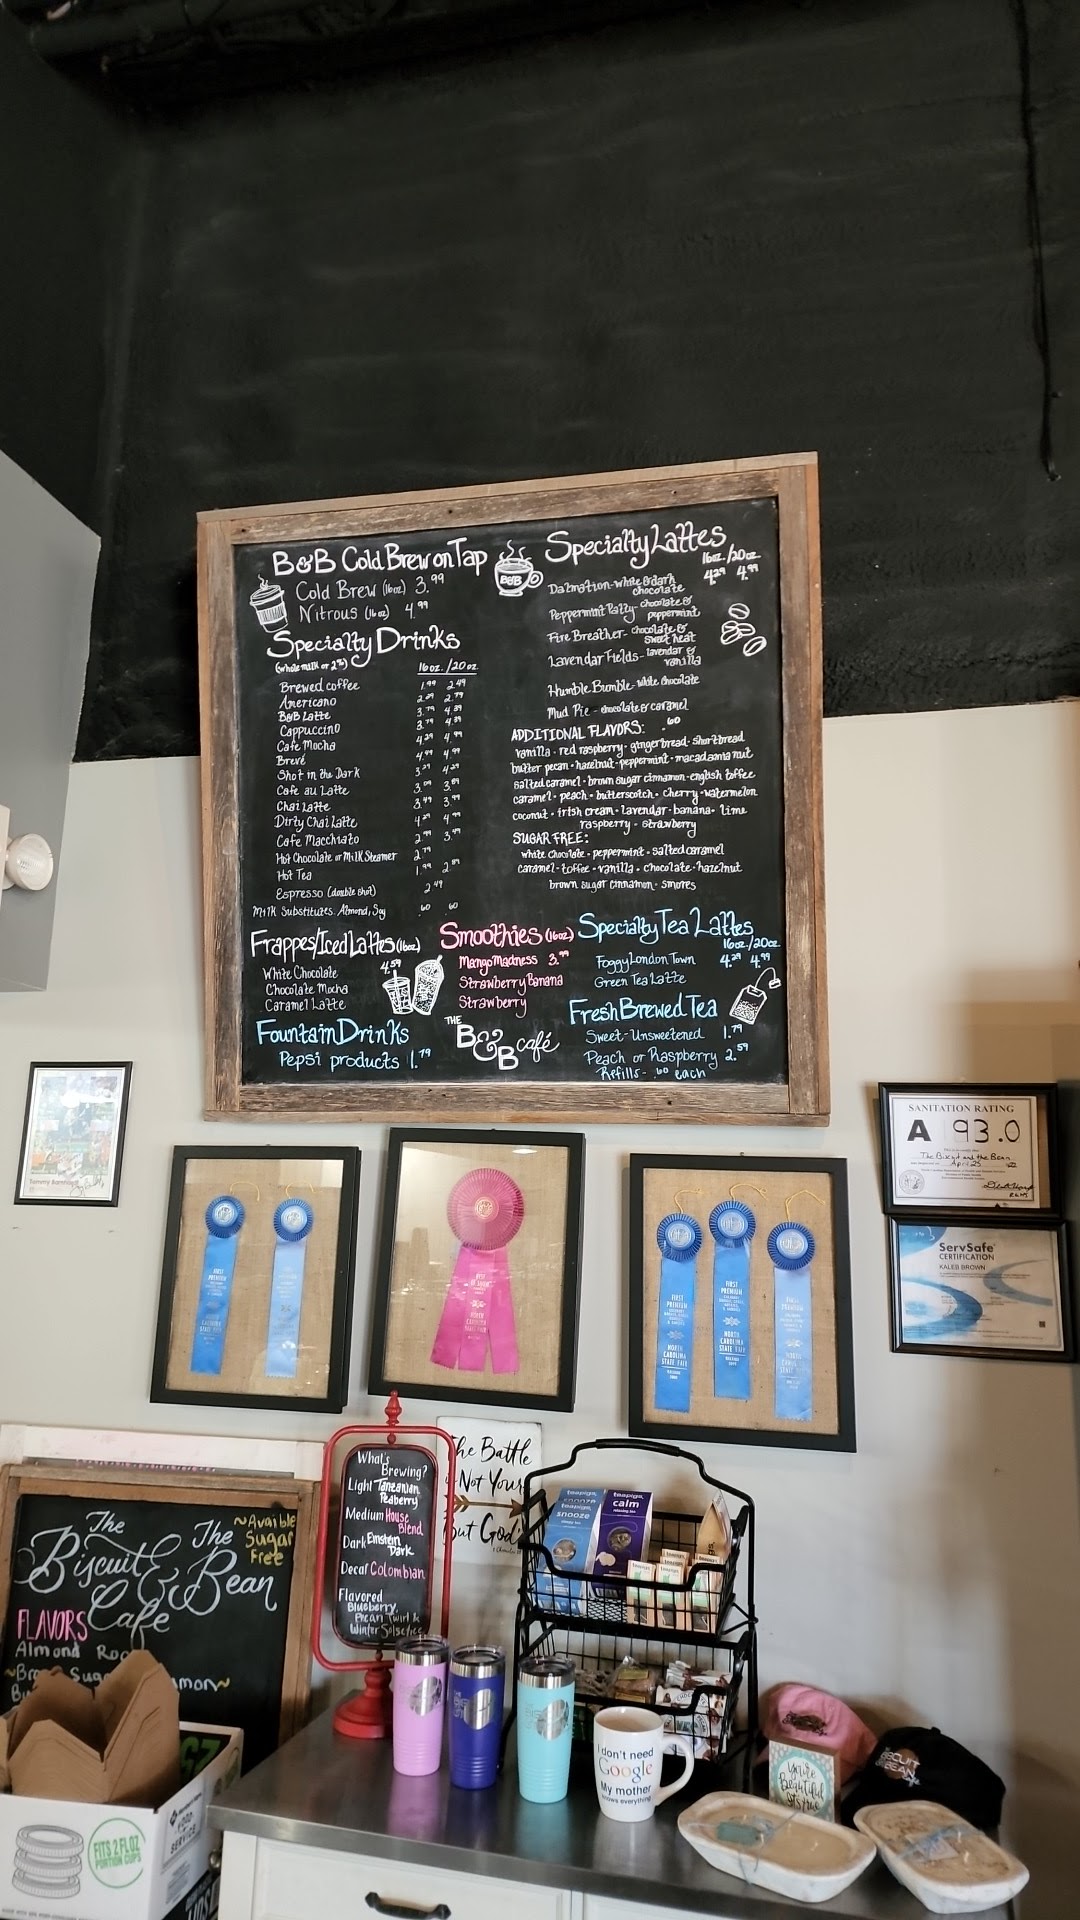 B&B Cold Brew on Tap
Cold Brew (16oz) 3.99
Nitrous (16oz) 4.99
Specialty Drinks
(whole milk or 2%)
16oz. / 20oz
Brewed coffee 1.99 2.49
Americano 2.29 2.79
B&B Latte 3.79 4.39
Cappuccino 3.79 4.39
Cafe Mocha 4.29 4.99
Brevé 4.99 4.99
Shot in the Dark 3.29 4.29
Cafe au Latte 3.09 3.89
Chai Latte 3.49 3.99
Dirty Chai Latte 4.29 4.99
Cafe Macchiato 2.99 3.49
Hot Chocolate or Milk Steamer 2.79
Hot Tea 1.99 2.89
Espresso (double shot) 2.49
Milk Substitutes. Almond, Soy .60 .60
Frappes/Iced Lattes (16oz)
4.59
White Chocolate
Chocolate Mocha
Caramel Latte
Fountain Drinks
Pepsi products 1.79
B&B
Specialty Lattes
16oz. / 20oz
4.29 4.99
Dalmation - white & dark
chocolate
Peppermint Patty - chocolate &
peppermint
Fire Breather - chocolate &
sweet heat
Lavendar Fields - lavendar &
vanilla
Humble Bumble - white chocolate
Mud Pie - chocolate & caramel
ADDITIONAL FLAVORS: .60
vanilla · red raspberry · gingerbread · shortbread
butter pecan · hazelnut · peppermint · macadamia nut
salted caramel · brown sugar cinnamon · english toffee
caramel · peach · butterscotch · cherry · watermelon
coconut · irish cream · lavendar · banana · lime
raspberry · strawberry
SUGAR FREE:
white chocolate · peppermint · salted caramel
caramel · toffee · vanilla · chocolate · hazelnut
brown sugar cinnamon · smores
Smoothies (16oz)
Mango Madness 3.99
Strawberry Banana
Strawberry
THE
B&B café
Specialty Tea Lattes
16oz./20oz
Foggy London Town 4.29 4.99
Green Tea Latte
Fresh Brewed Tea
Sweet - Unsweetened 1.79
Peach or Raspberry 2.59
Refills - .60 each
SANITATION RATING
A 93.0
The Biscuit and the Bean
April 25
ServSafe
CERTIFICATION
KALEB BROWN
FIRST
PREMIUM
NORTH
CAROLINA
STATE FAIR
FIRST
PREMIUM
NORTH
CAROLINA
STATE FAIR
What's
Brewing?
Light Tanzanian
Peaberry
Medium House
Blend
Dark Einstein
Dark
Decaf Colombian
Flavored
Blueberry,
Pecan Twirl &
Winter Solsctice
The Battle
Not Yours
But God's
The The
Biscuit & Bean
Cafe
~Avaible
Sugar
Free
FLAVORS
Almond Roc
teapigs.
snooze
teapigs.
calm
I don't need
Google
My mother
knows everything
You're
Beautiful
BISCUIT
BEAN
FITS 2 FL OZ
PORTION CUPS